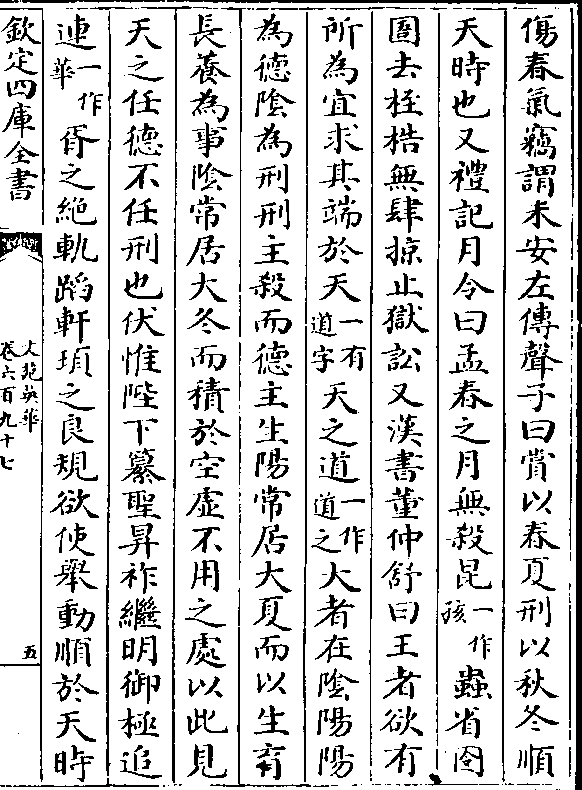 傷春氣竊謂未安左傳聲子曰賞以春夏刑以秋冬順
天時也又禮記月令曰孟春之月無殺昆一作孩蟲省囹
圄去桎梏無肆掠止獄訟又漢書董仲舒曰王者欲有
所為宜求其端於天一有道字天之道一作道之大者在陰陽陽
為德陰為刑刑主殺而德主生陽常居大夏而以生育
長養為事陰常居大冬而積於空虛不用之處以此見
天之任德不任刑也伏惟陛下纂聖昇祚繼明御極追
連一作華胥之絶軌蹈軒頊之良規欲使舉動順於天時
欽定四庫全書
文苑英華
卷六百九十七
五